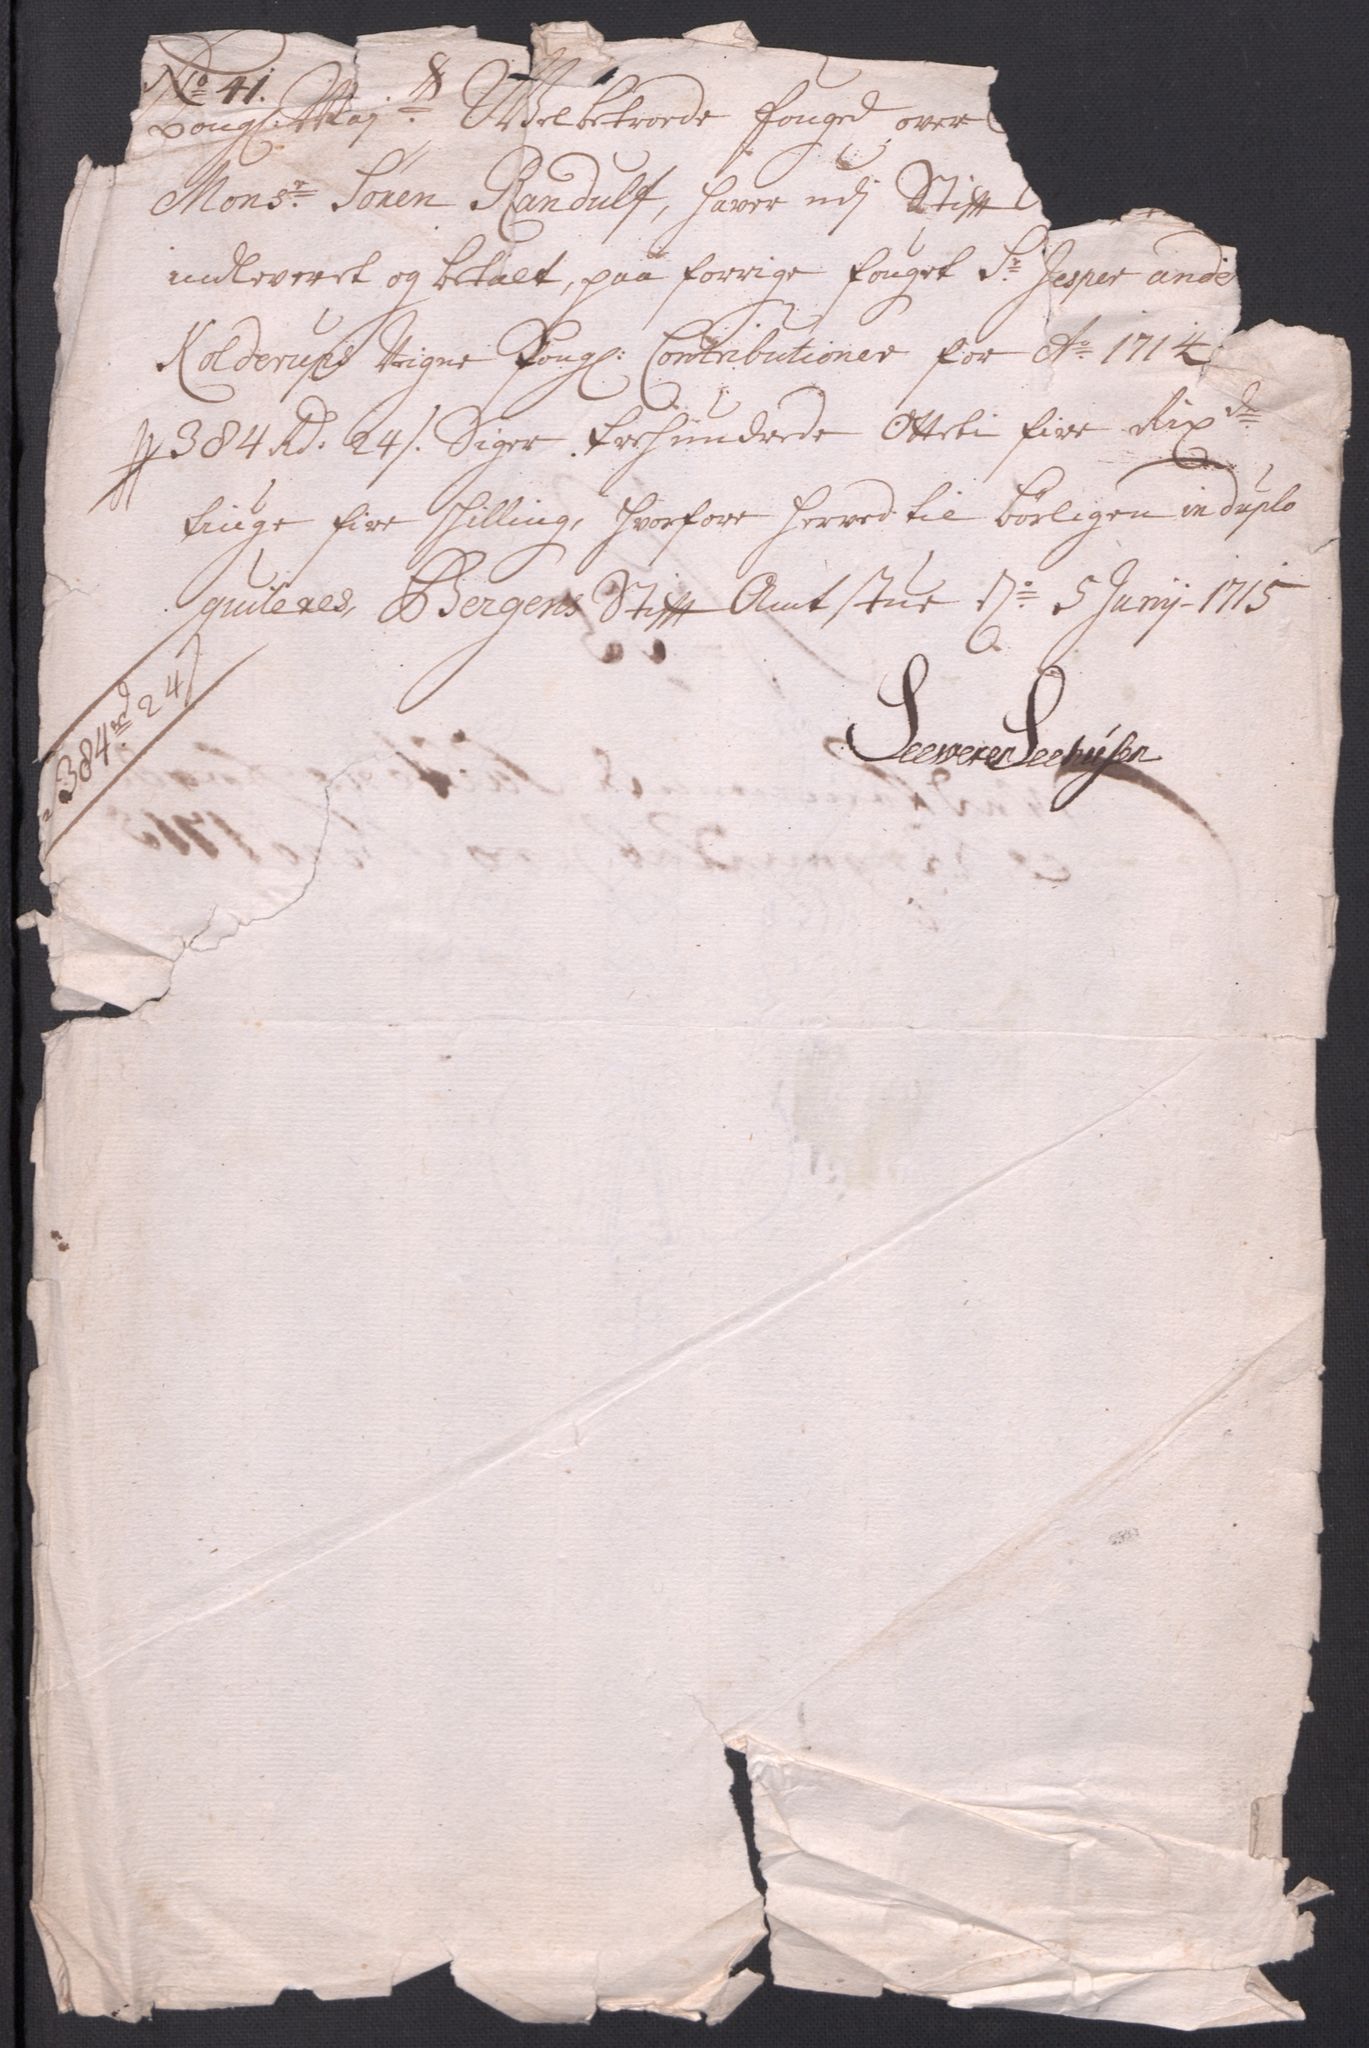 No 41.
Kongl: Maj:ts Welbetroede fouged over
Monsr. Søren Randulf, hafver udj Stift
indleveret og betalt, paa forrige fouget Sr. Jesper ande
Kolderups Vegne Kongl: Contributioner for Ao. 1714
384 Rd. 24 s. Siger trehundrede Otteti fire Rixdr
tiuge fire skilling, hvorfore herved til børligen in duplo
quiteres, Bergens Stift Amtstue dn 5 Junij 1715
384 rd 24
Seeweren Seehusen